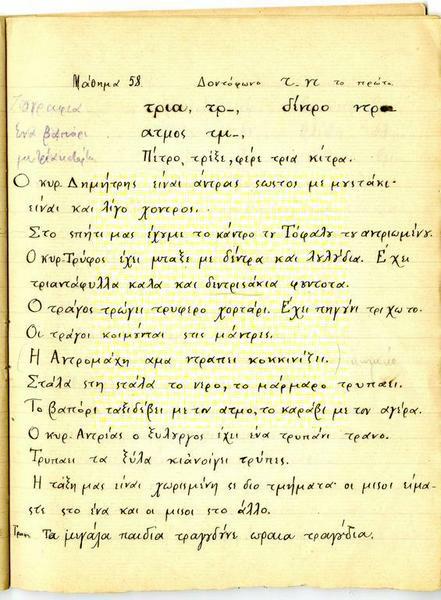 Μάθημα 58. Δοντόφωνο τ. ντ το πρώτο
Ζογραφια τρια, τρ–, δίντρο ντρ
ένα βαπόρι ατμος τμ–,
με τρία κατάρτια Πέτρο, τρέξε, φέρε τρια κίτρα.
Ο κυρ. Δημήτρης είναι άντρας σωστος με μυστάκι·
είναι και λίγο χοντρος.
Στο σπήτι μας έχυμε το κάντρο τυ Τόφαλυ τυ αντριωμένυ.
Ο κυρ. Τρύφος έχει μπαξε με δέντρα και λυλύδια. Έχει
τριαντάφυλλα καλα και δεντρεσάκια φυντοτα.
Ο τράγος τρώγει τρυφερο χορτάρι. Έχει πηγύνι τριχωτο.
Οι τράγοι κοιμύνται στις μάντρες.
(Η Αντρομάχη αμα ντραπει κοκκινίζει.)
Στάλα στη στάλα το νερο, το μάρμαρο τρυπαει.
Το βαπόρι ταξιδέβει με τον ατμο, το καράβι με τον αγέρα.
Ο κυρ. Αντρίας ο ξυλυργος έχει ένα τρυπάνι τρανο.
Τρυπαει τα ξύλα κι ανοίγει τρύπες.
Η τάξη μας είναι χωρισμένη σε διο τμήματα· οι μισοι είμα-
στε στο ένα και οι μισοι στο άλλο.
Τα μεγάλα παιδια τραγυδύνε ωραια τραγύδια.